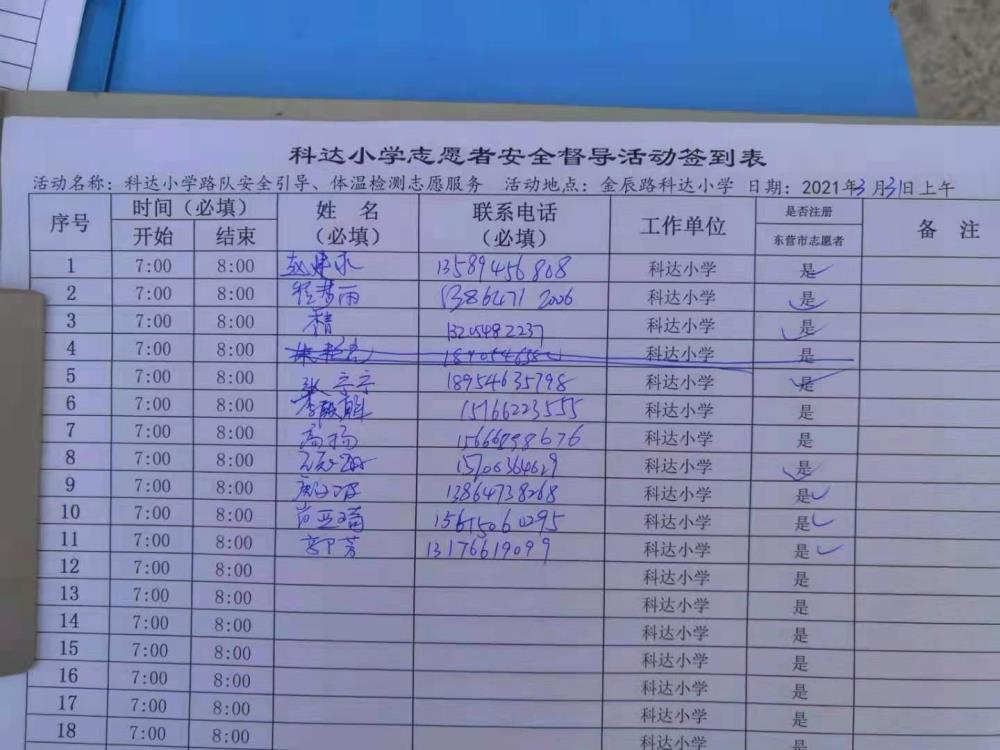 科达小学志愿者安全督导活动签到表
活动名称：科达小学路队安全引导、体温检测志愿服务 活动地点：金辰路科达小学 日期：2021年3月31日上午
序号 时间（必填） 姓 名（必填） 联系电话（必填） 工作单位 是否注册 东营市志愿者 备 注
开始 结束
1 7:00 8:00 13589456868 科达小学 是
2 7:00 8:00 程梦丽 13864712006 科达小学 是
3 7:00 8:00 科达小学 是
4 7:00 8:00 科达小学 是
5 7:00 8:00 张宁宁 18954635798 科达小学 是
6 7:00 8:00 15166223555 科达小学 是
7 7:00 8:00 高扬 15666898676 科达小学 是
8 7:00 8:00 15706364629 科达小学 是
9 7:00 8:00 13864738268 科达小学 是
10 7:00 8:00 尚亚楠 15615060295 科达小学 是
11 7:00 8:00 郭芳 13176619099 科达小学 是
12 7:00 8:00 科达小学 是
13 7:00 8:00 科达小学 是
14 7:00 8:00 科达小学 是
15 7:00 8:00 科达小学 是
16 7:00 8:00 科达小学 是
17 7:00 8:00 科达小学 是
18 7:00 8:00 科达小学 是